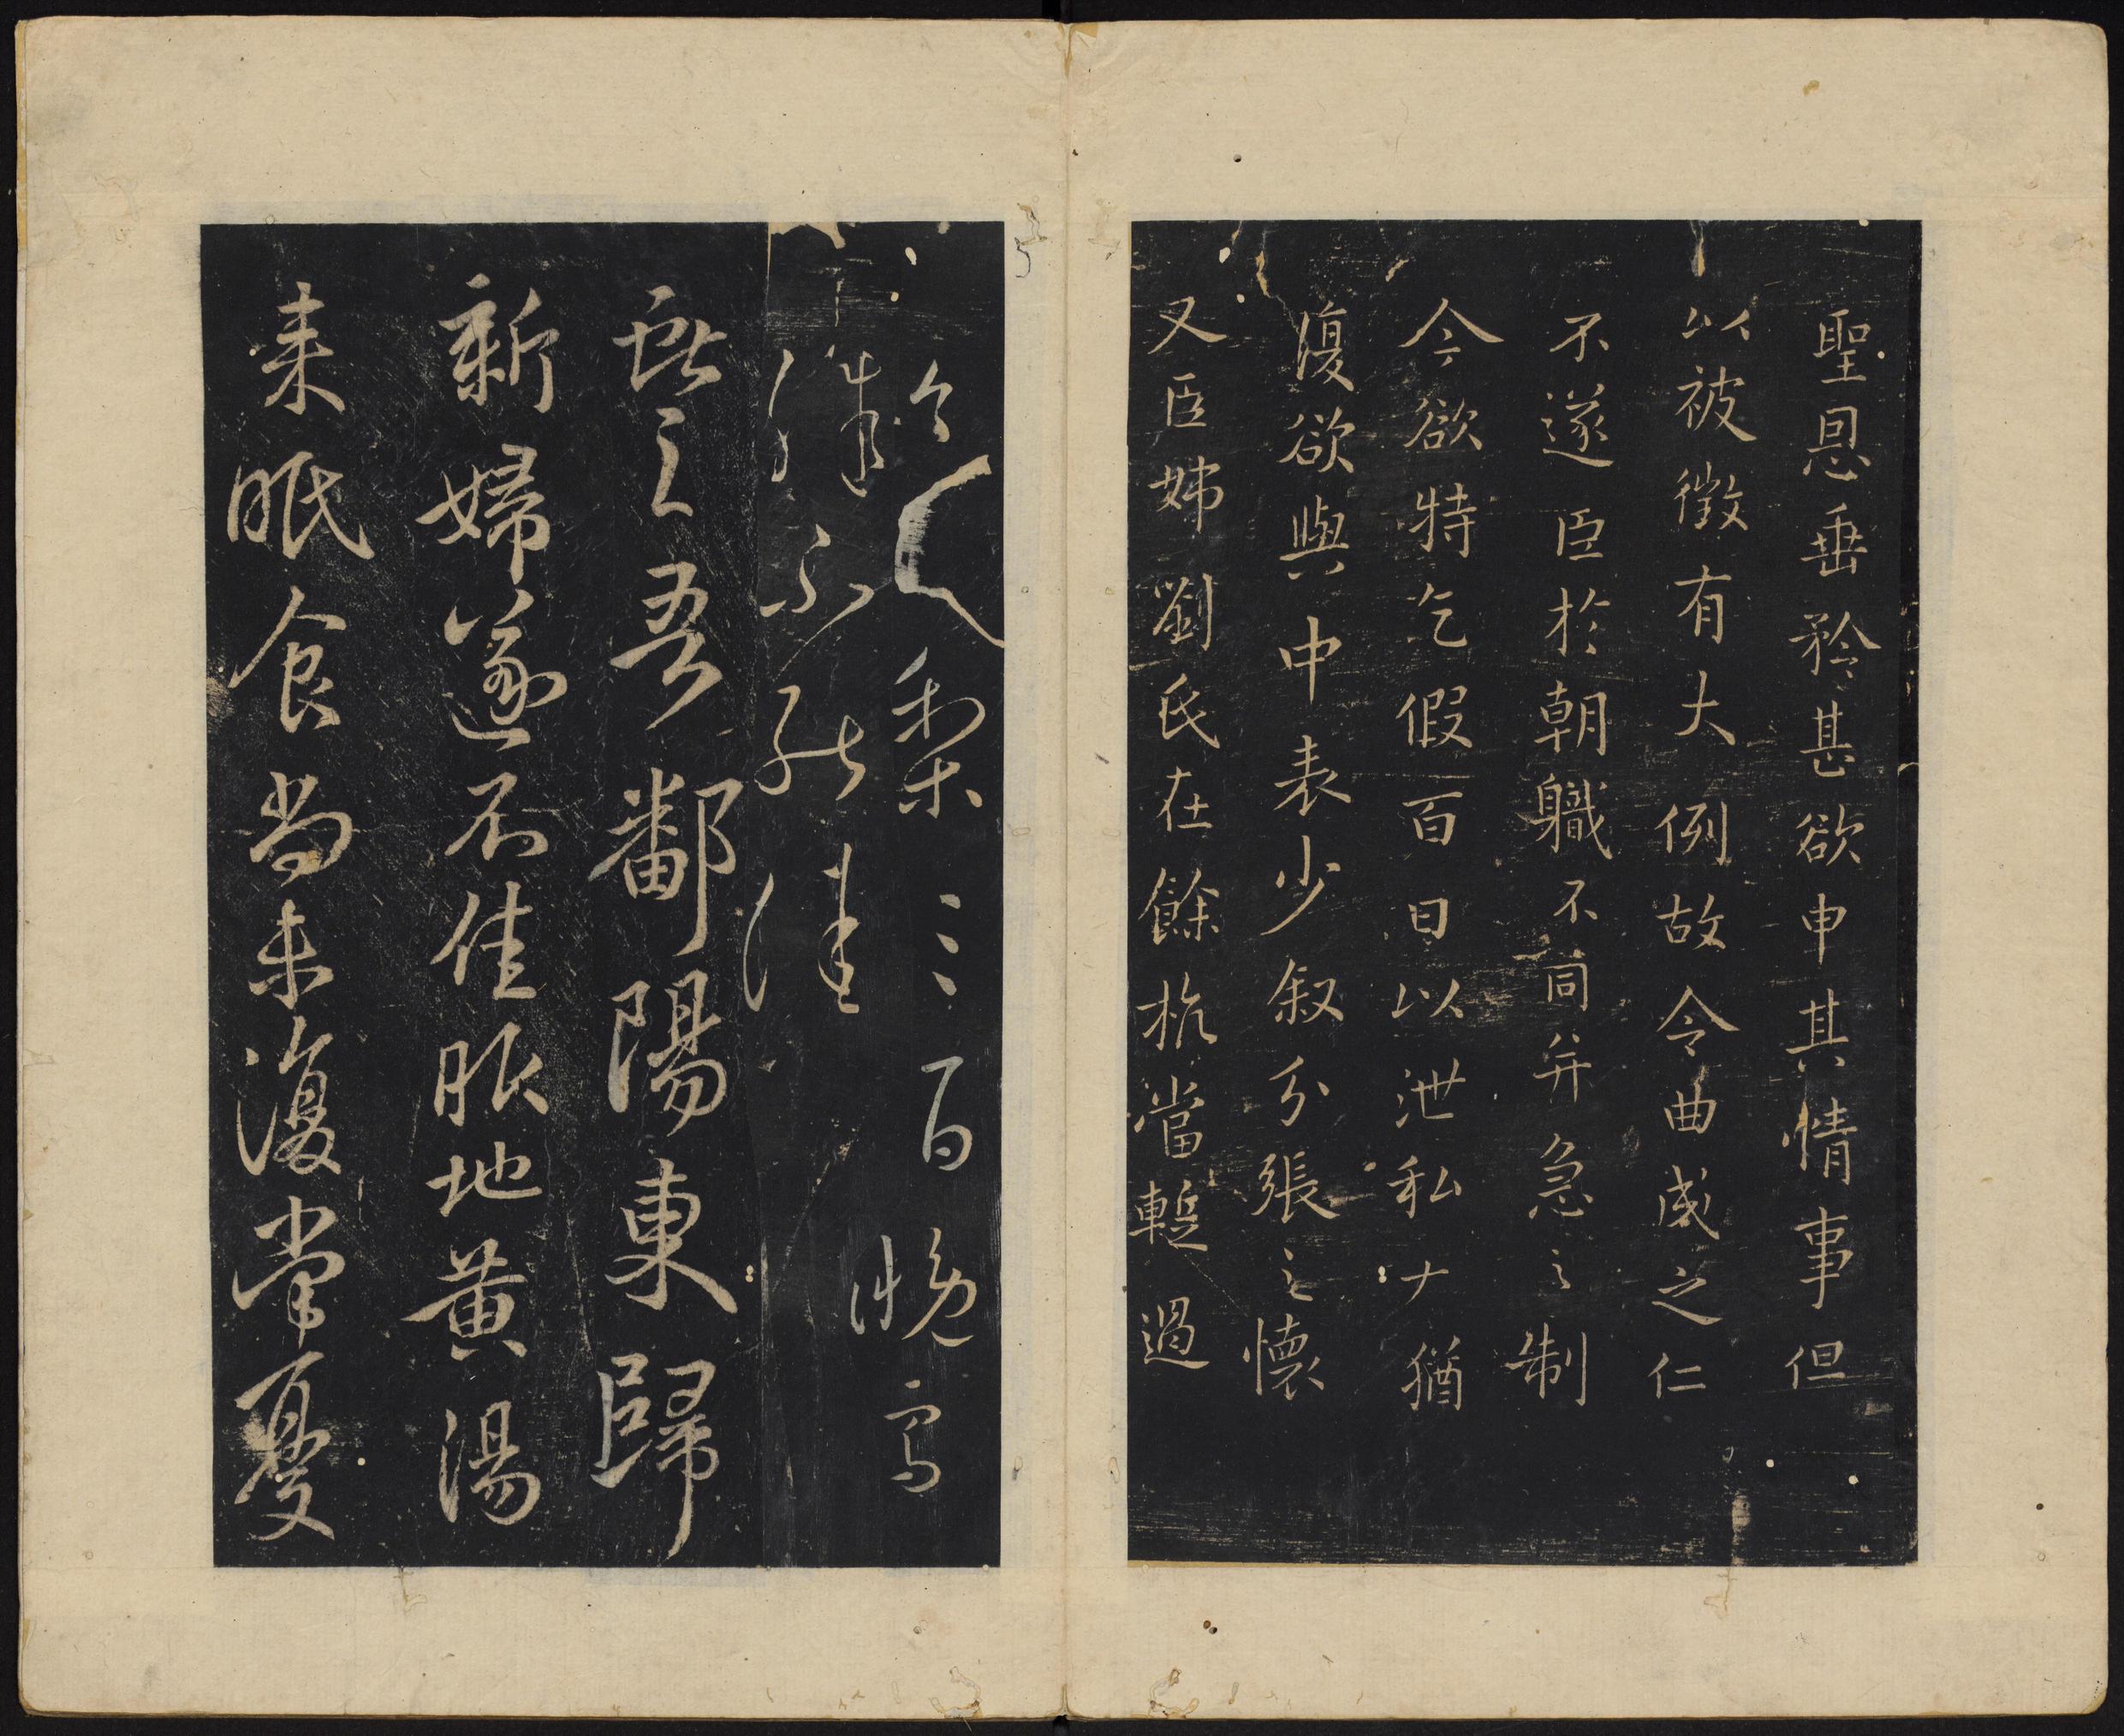 聖恩垂矜甚欲申其情事但
以被徵有大例故令曲成之仁
不遂臣於朝職不同并急之制
今欲特乞假百日以泄私猶
復欲與中表少叙分張之懷
又臣姊劉氏在餘杭當蹔過
今送梨三百晚雪
殊不能佳
之吾鄱陽東歸
新婦遂不佳服地黃湯
来眠食尚未復常憂